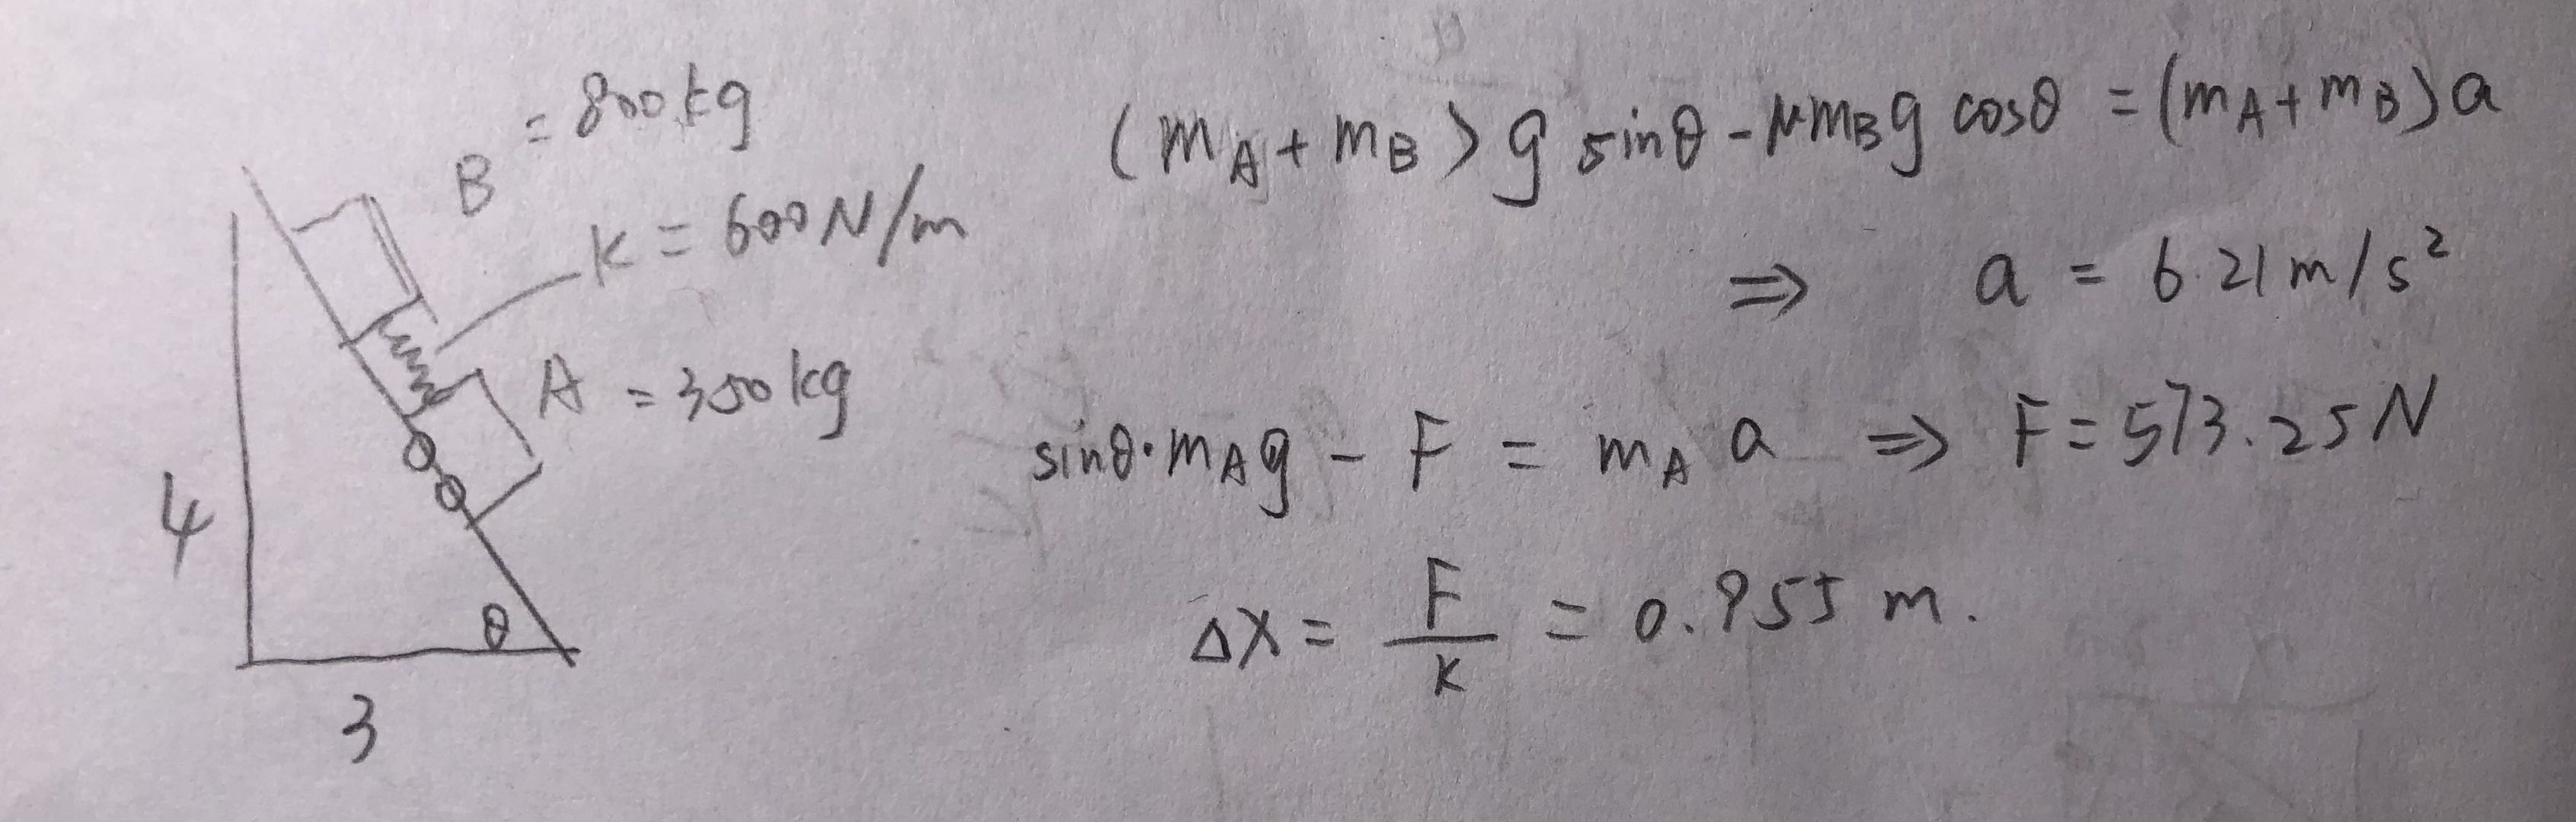 B = 800kg
K = 600N/m
A = 350kg
4
3
θ
(mA + mB) g sinθ - μmBg cosθ = (mA + mB) a
⇒ a = 6.21 m/s²
sinθ·mAg - F = mA a ⇒ F = 573.25N
Δx = F/K = 0.955 m.